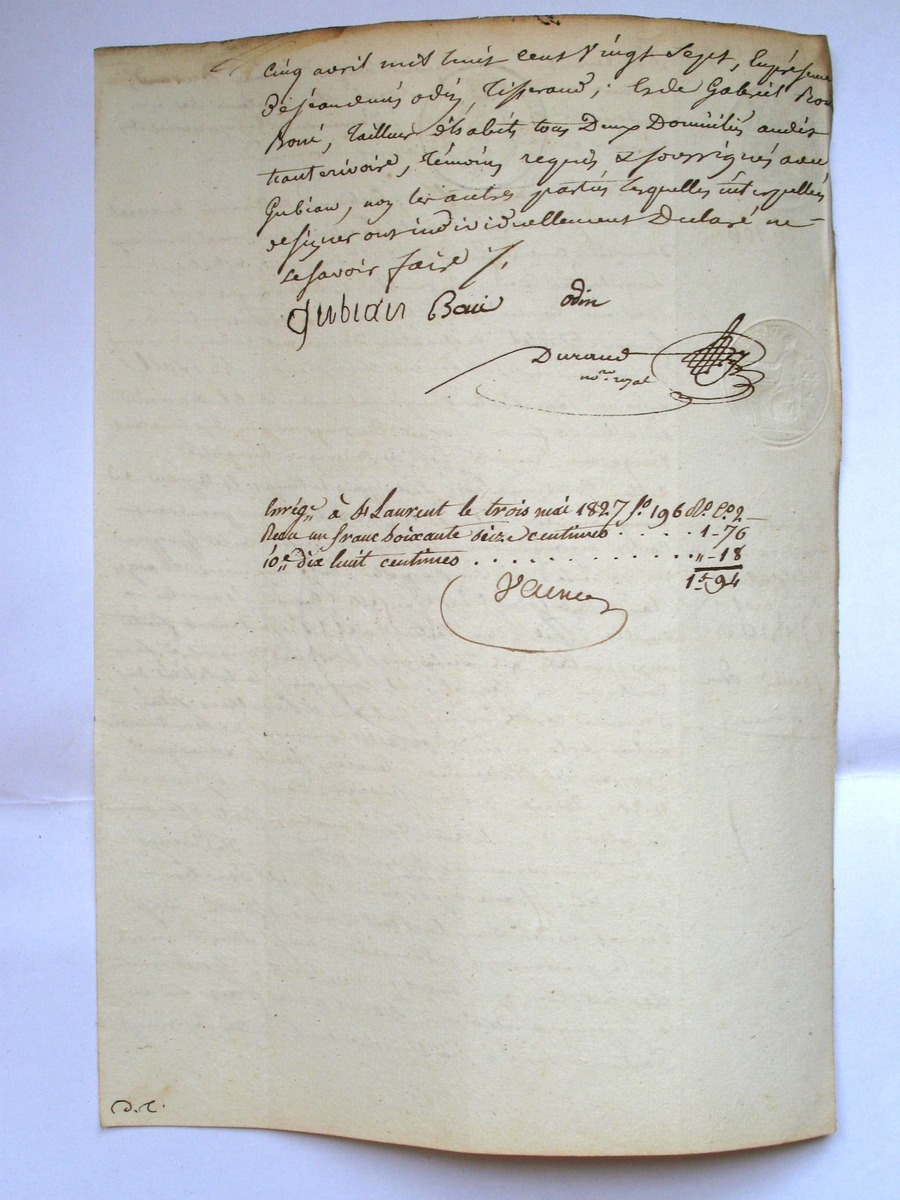 cinq avril mil huit cent vingt sept, En présence
De jean denis odin, Tisserand, Et de Gabriel
Boué, tailleur d'habits tous Deux Domiciliés audit
hauterivoire, témoins requis & soussignés avec
Gubian, non les autres parties lesquelles interpellés
de signer ont individuellement Declaré ne
le savoir faire /.
gubian odin
Durand
no.re royal
Enrég.é à St Laurent le trois mai 1827 f.o 196 R.o C.e 2
Reçu un franc soixante seize centimes . . . . . 1-76
10.e dix huit centimes . . . . . . . . . . . . . . " - 18
1f 94
d.c.